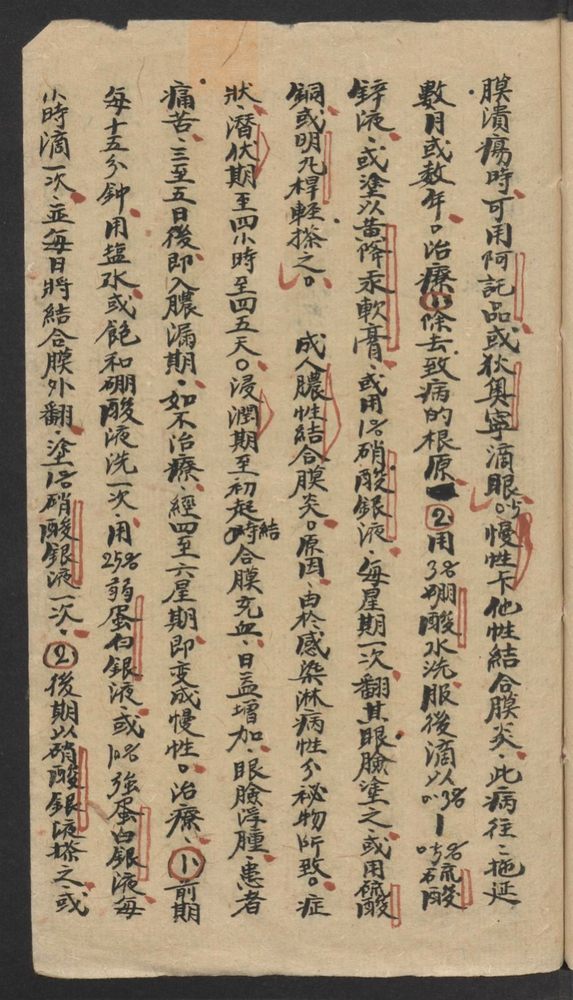 膜潰瘍時可用阿託品或狄奥寧滴眼。慢性卡他性結合膜炎、此病往々拖延
數月或数年。治療(1)除去致病的根原 (2)用3%硼酸水洗眼後滴以0.3%—0.5%硫酸
鋅液、或塗以黄降汞軟膏、或用1%硝酸銀液、每星期一次、翻其眼臉塗之、或用硫酸
銅或明凡桿輕搽之。 成人膿性結合膜炎。原因、由於感染淋病性分祕物所致。症
狀、潛伏期至四小時至四五天。浸潤期至初起時結合膜充血、日益增加、眼臉浮腫、患者
痛苦、三至五日後、即入膿漏期、如不治療、經四至六星期即变成慢性。治療、(1)前期
每十五分鈡用盐水或飽和硼酸液洗一次、用25%弱蛋白銀液、或10%強蛋白銀液、每
小時滴一次、並每日將結合膜外翻、塗1%硝酸銀液一次、(2)後期以硝酸銀液搽之、或